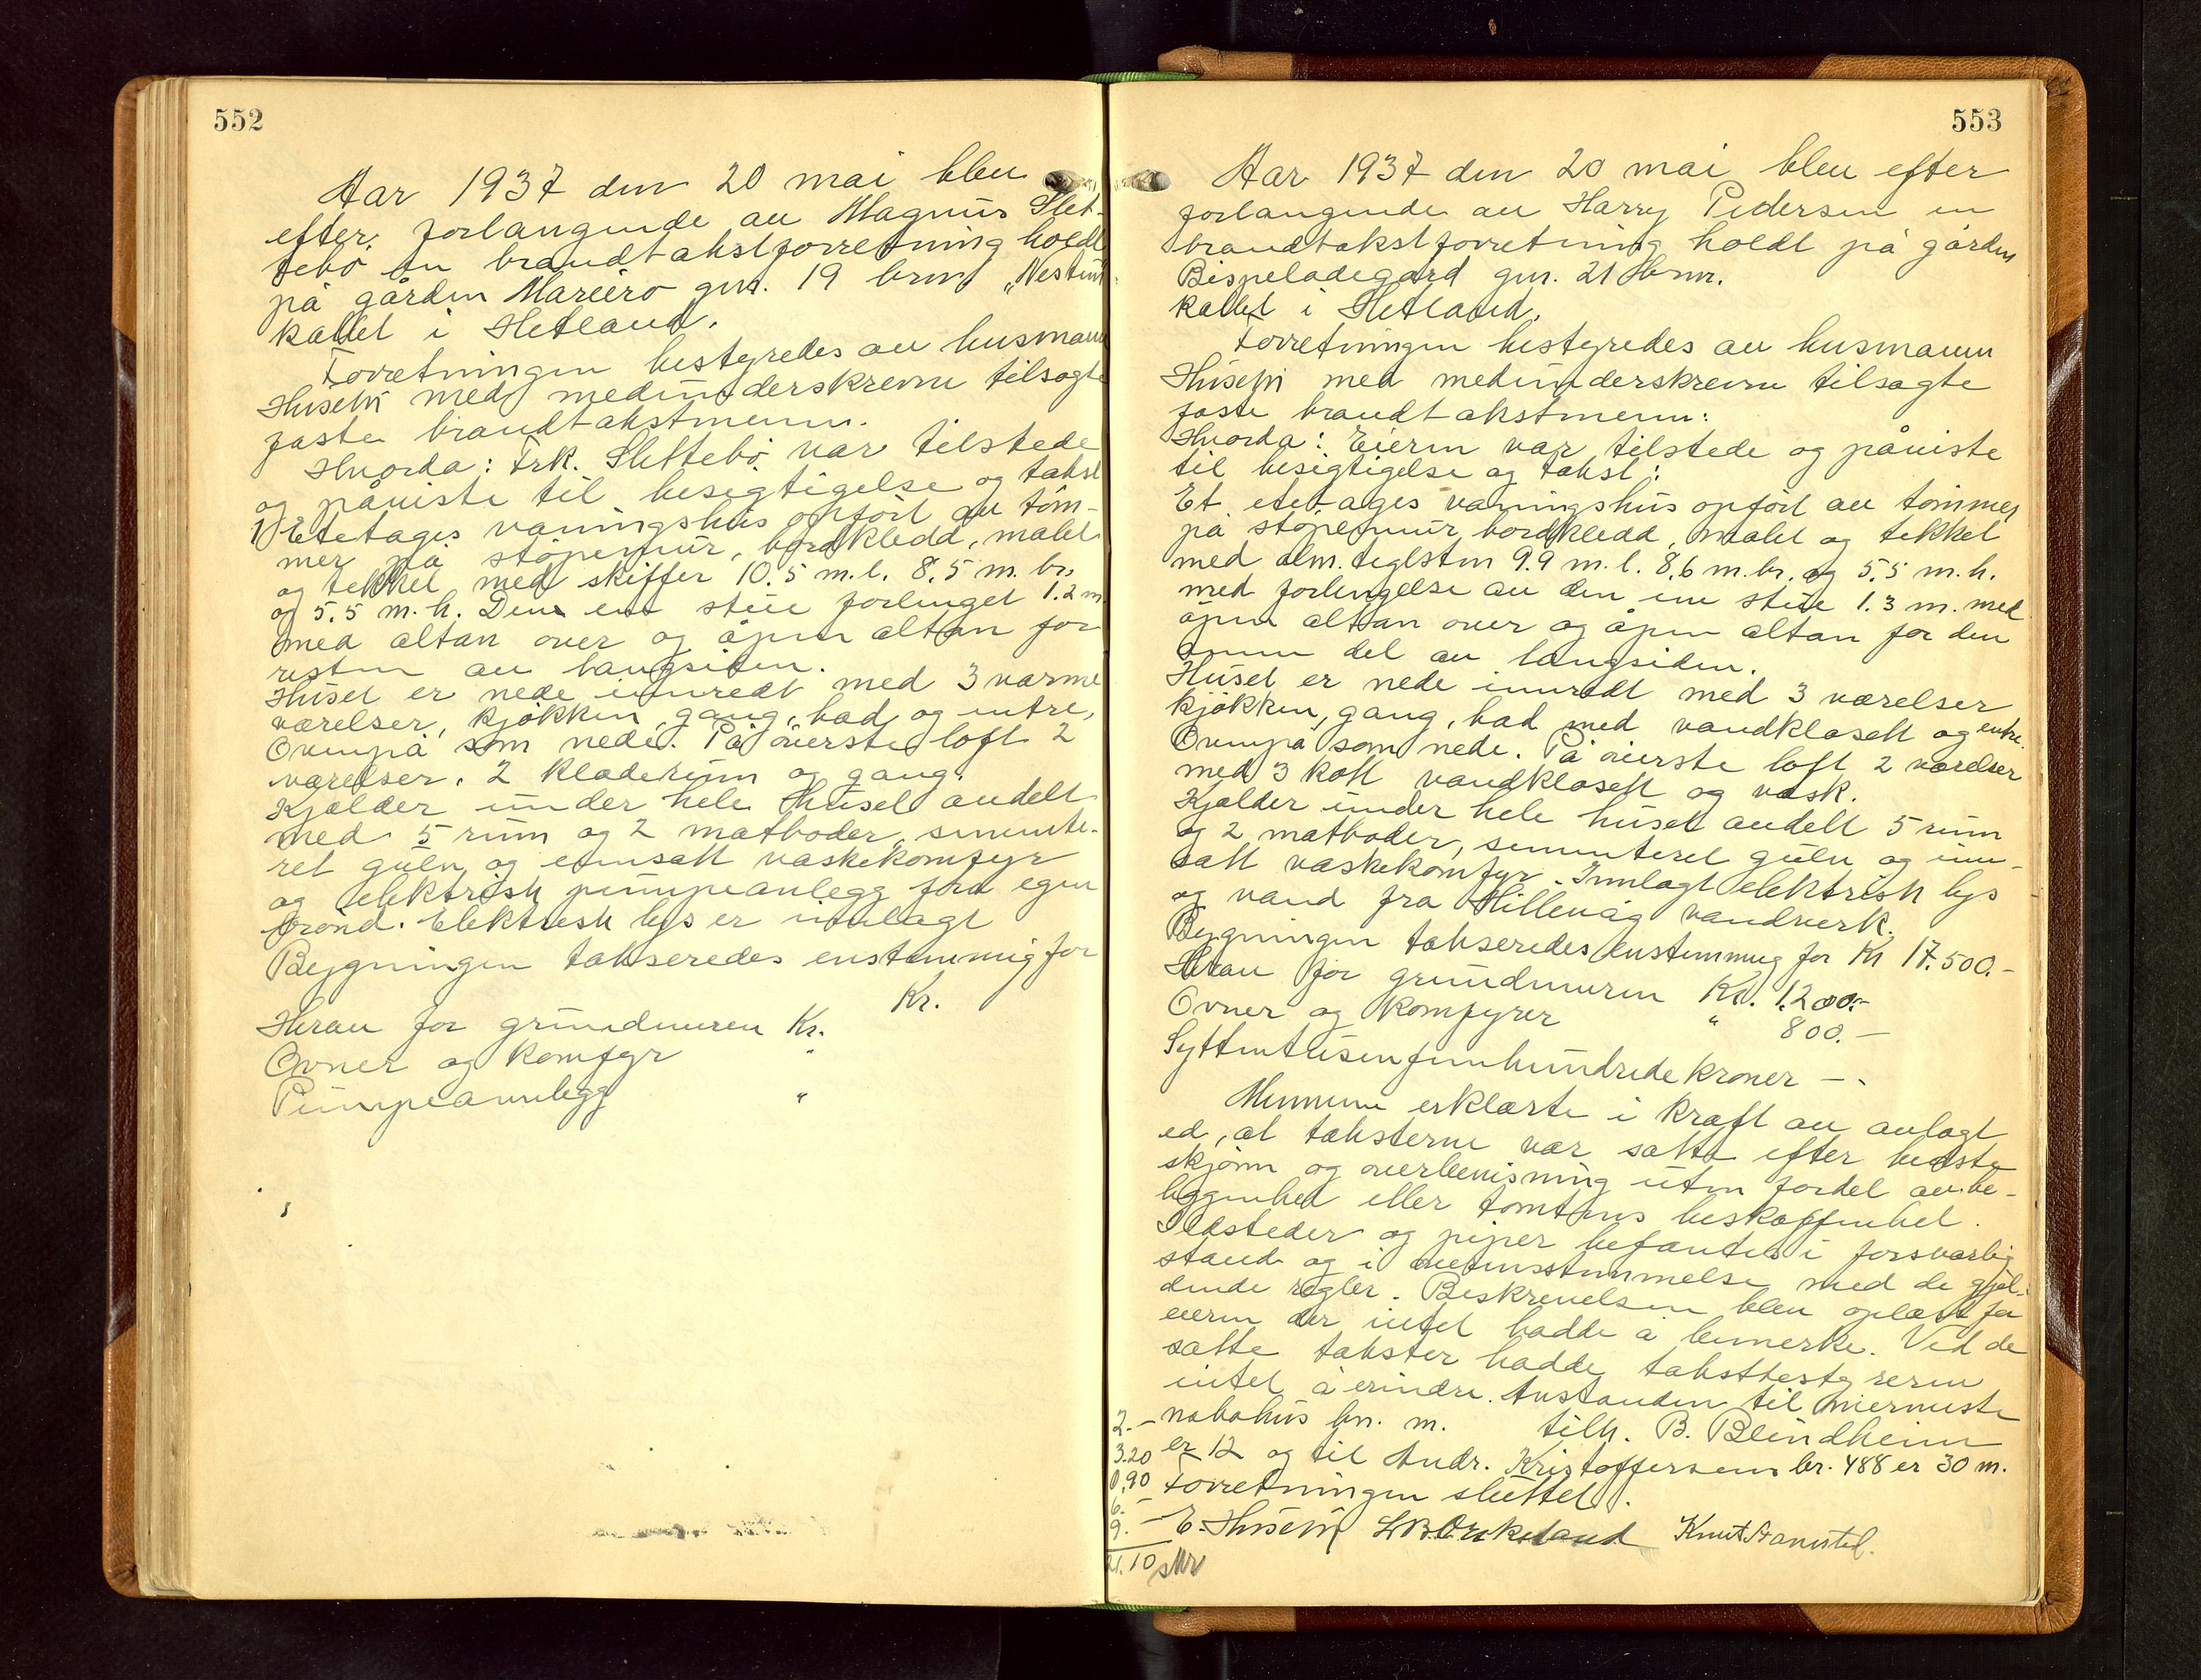 552
Aar 1937 den 20 mai blev
efter forlangende av Magnus Slet-
tebø en brandtakstforretning holdt
på gården Mariero gnr. 19 brnr "Nestun"
kallet i Hetland.
Forretningen bestyredes av husmann
Husebø med medunderskrevne tilsagte
faste brandtakstmenn.
Hvorda: Frk. Slettebø var tilstede
og påviste til besigtigelse og takst
1) Etetages våningshus opført av tøm-
mer på støpemur, bordkledd, malet
og tekket med skiffer 10.5 m.l. 8.5 m. br.
og 5.5 m.h. Den ene stue forlenget 1.2 m
med altan over og åpen altan for
resten av langsiden.
Huset er nede innredt med 3 varme
værelser, kjøkken, gang, bad og entre,
Ovenpå som nede. På øverste loft 2
værelser, 2 kladerum og gang.
Kjælder under hele huset avdelt
med 5 rum og 2 matboder, semente-
ret gulv og ennsatt vaskekomfyr
og elektrisk pumpeanlegg fra egen
brønd. Elektrisk lys er innlagt
Bygningen takseredes enstemmig for
Kr.
Herav for grundmuren Kr.
Ovner og komfyr "
Pumpeannlegg "
553
Aar 1937 den 20 mai blev efter
forlangende av Harry Pedersen en
brandtakstforretning holdt på gården
Bispeladegård gnr. 21 brnr.
kallet i Hetland.
Forretningen bestyredes av husmann
Husebø med medunderskrevne tilsagte
faste brandtakstmenn:
Hvorda: Eieren var tilstede og påviste
til besigtigelse og takst:
Et etetages våningshus opført av tømmer
på støpemur bordkledd, malet og tekket
med alm. teglsten 9.9 m.l. 8.6 m.br. og 5.5 m.h.
med forlengelse av den ene stue 1.3 m. med
åpen altan over og åpen altan for den
annen del av langsiden.
Huset er nede innredt med 3 værelser
kjøkken, gang, bad med vandklosett og entre.
Ovenpå som nede. På øverste loft 2 værelser
med 3 kott vandklosett og vask.
Kjælder under hele huset avdelt 5 rum
og 2 matboder, sementeret gulv og inn-
satt vaskekomfyr. Innlagt elektrisk lys
og vand fra Hillevåg vandverk.
Bygningen takseredes enstemmig for Kr 17.500.-
Herav for grundmuren Kr. 1.200.-
Ovner og komfyrer " 800.-
Syttentusenfemhundrede kroner -
Mennene erklærte i kraft av avlagt
ed, at taksterne var satte efter bedste
skjønn og overbevisning uten fordel av be-
liggenhet eller tomtens beskaffenhet.
Ildsteder og piper befantes i forsvarlig
stand og i overensstemmelse med de gjel-
dende regler. Beskrivelsen blev oplæst for
eieren der intet hadde å bemerke. Ved de
satte takster hadde takstbestyreren
intet å erindre. Avstanden til nærmeste
2.- nabohus bn. m. tilh. B. Blindheim
3.20 er 12 og til Andr. Kristoffersens br. 488 er 30 m.
0.90 Forretningen sluttet.
6.-
9.- E. Husebø
21.10